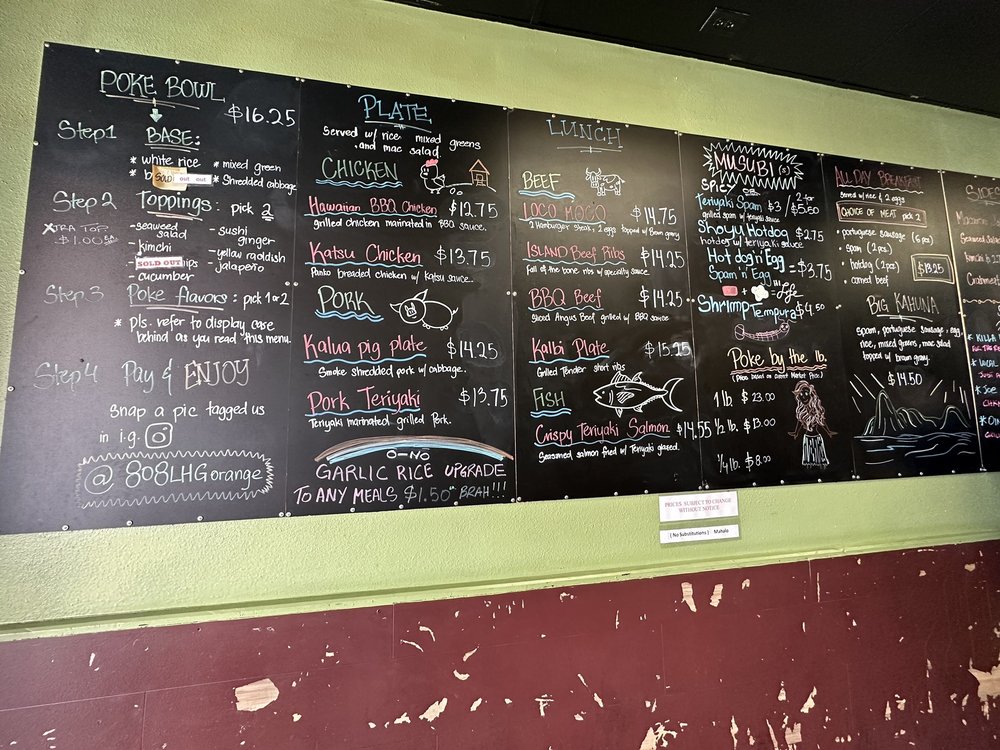 POKE BOWL
$16.25
Step 1 BASE:
* white rice * mixed green
* b SOLD out out * Shredded cabbage
Step 2 Toppings: pick 2
XTRA TOP. $1.00
-seaweed salad - sushi ginger
-kimchi - yellow radish
SOLD OUT - jalapeño
cucumber
Step 3 Poke flavors: pick 1 or 2
* pls. refer to display case
behind as you read this menu.
Step 4 Pay & ENJOY
Snap a pic tagged us
in i.g.
@ 808LHGorange
PLATE
served w/ rice, mixed greens
and mac salad
CHICKEN
Hawaiian BBQ Chicken $12.75
grilled chicken marinated in BBQ sauce.
Katsu Chicken $13.75
Panko breaded chicken w/ katsu sauce.
PORK
Kalua pig plate $14.25
Smoke shredded pork w/ cabbage.
Pork Teriyaki $13.75
Teriyaki marinated grilled Pork.
O-NO
GARLIC RICE UPGRADE
TO ANY MEALS $1.50 BRAH!!!
LUNCH
BEEF
LOCO MOCO $14.75
2 Hamburger Steak, 2 eggs topped w/ Brown gravy
ISLAND BEEF Ribs $14.25
Fall of the bone ribs w/ specialty sauce.
BBQ Beef $14.25
Sliced Angus Beef grilled w/ BBQ sauce
Kalbi Plate $15.25
Grilled Tender short ribs
FISH
Crispy Teriyaki Salmon $14.55
Seasoned salmon fried w/ Teriyaki glazed.
MUSUBI (s)
SPICY OR
Teriyaki Spam $3 / 2 for $5.50
grilled spam w/ teriyaki sauce
Shoyu Hotdog $2.75
hotdog w/ teriyaki sauce
Hot dog 'n' Egg
Spam 'n' Egg = $3.75
Shrimp Tempura $4.50
Poke by the lb.
(Prices based on Current Market Price)
1 lb $23.00
1/2 lb. $13.00
1/4 lb. $8.00
ALL DAY BREAKFAST
served w/ rice & 2 eggs
CHOICE OF MEAT pick 2
• portuguese sausage (6 pcs)
• spam (2 pcs)
• hotdog (2 pcs) $13.25
• corned beef
BIG KAHUNA
Spam, portuguese sausage, egg,
rice, mixed greens, mac salad
topped w/ brown gravy.
$14.50
SIDES
Macaroni
Seaweed Salad
Kimchi
* KILLA
* LOCAL
* JOE
PRICES SUBJECT TO CHANGE
WITHOUT NOTICE
( No Substitutions ) Mahalo